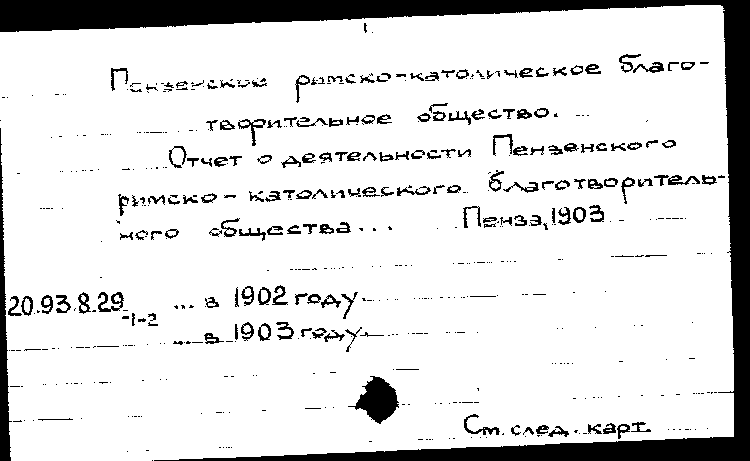 Пензенское римско-католическое благо-
творительное общество.
Отчет о деятельности Пензенского
римско-католического благотворитель-
ного общества... Пенза, 1903
20.93.8.29 ... в 1902 году.
-1-2
... в 1903 году.
См. след. карт.